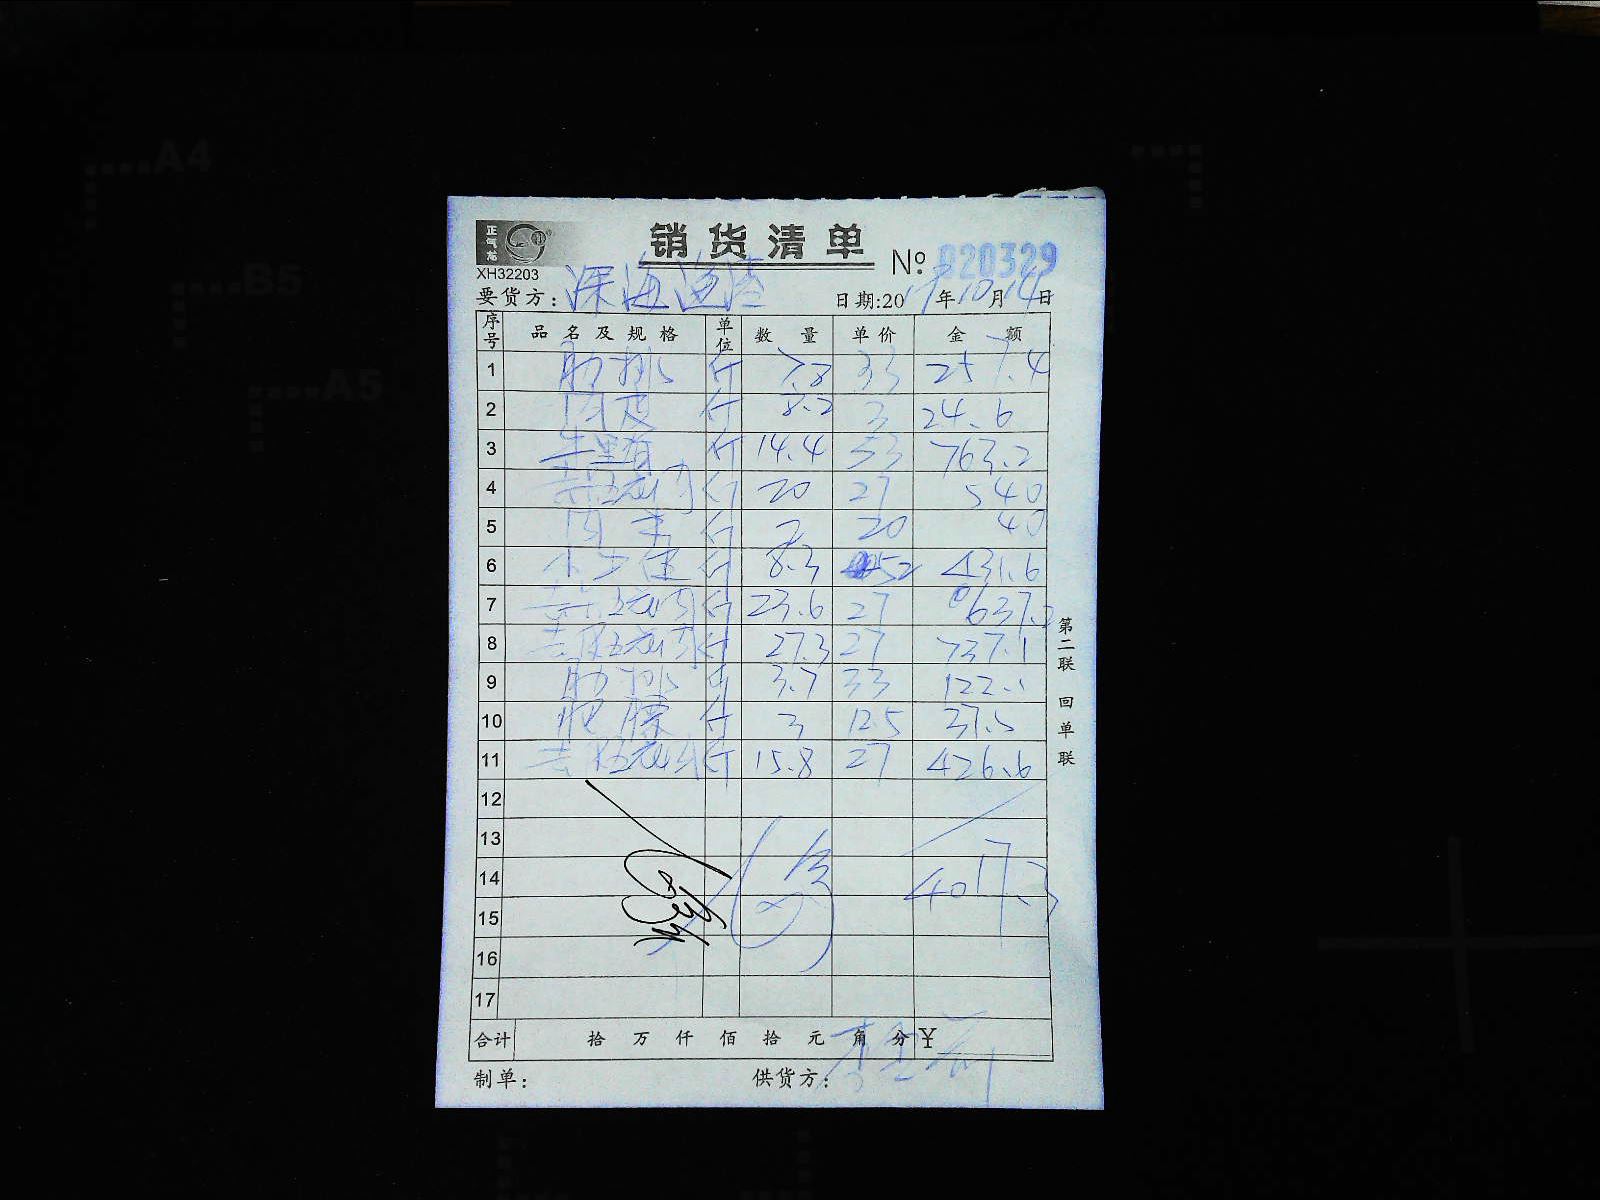 A4
B5
A5
正气龙
XH32203
销货清单
№ 020329
要货方: 深海渔港
日期:2017年10月14日
序号 品名及规格 单位 数量 单价 金额
1 肋排 斤 7.8 33 257.4
2 肉皮 斤 8.2 3 24.6
3 斤 14.4 53 763.2
4 去皮五花肉 斤 20 27 540
5 肉 斤 2 20 40
6 斤 8.3 52 431.6
7 去皮五花肉 斤 23.6 27 637.2
8 去皮五花肉 斤 27.3 27 737.1
9 肋排 斤 3.7 33 122.1
10 肥膘 斤 3 12.5 37.5
11 去皮五花肉 斤 15.8 27 426.6
12
13
14 4017.3
15
16
17
合计 拾 万 仟 佰 拾 元 角 分 ¥
制单:
供货方:
第二联 回单联